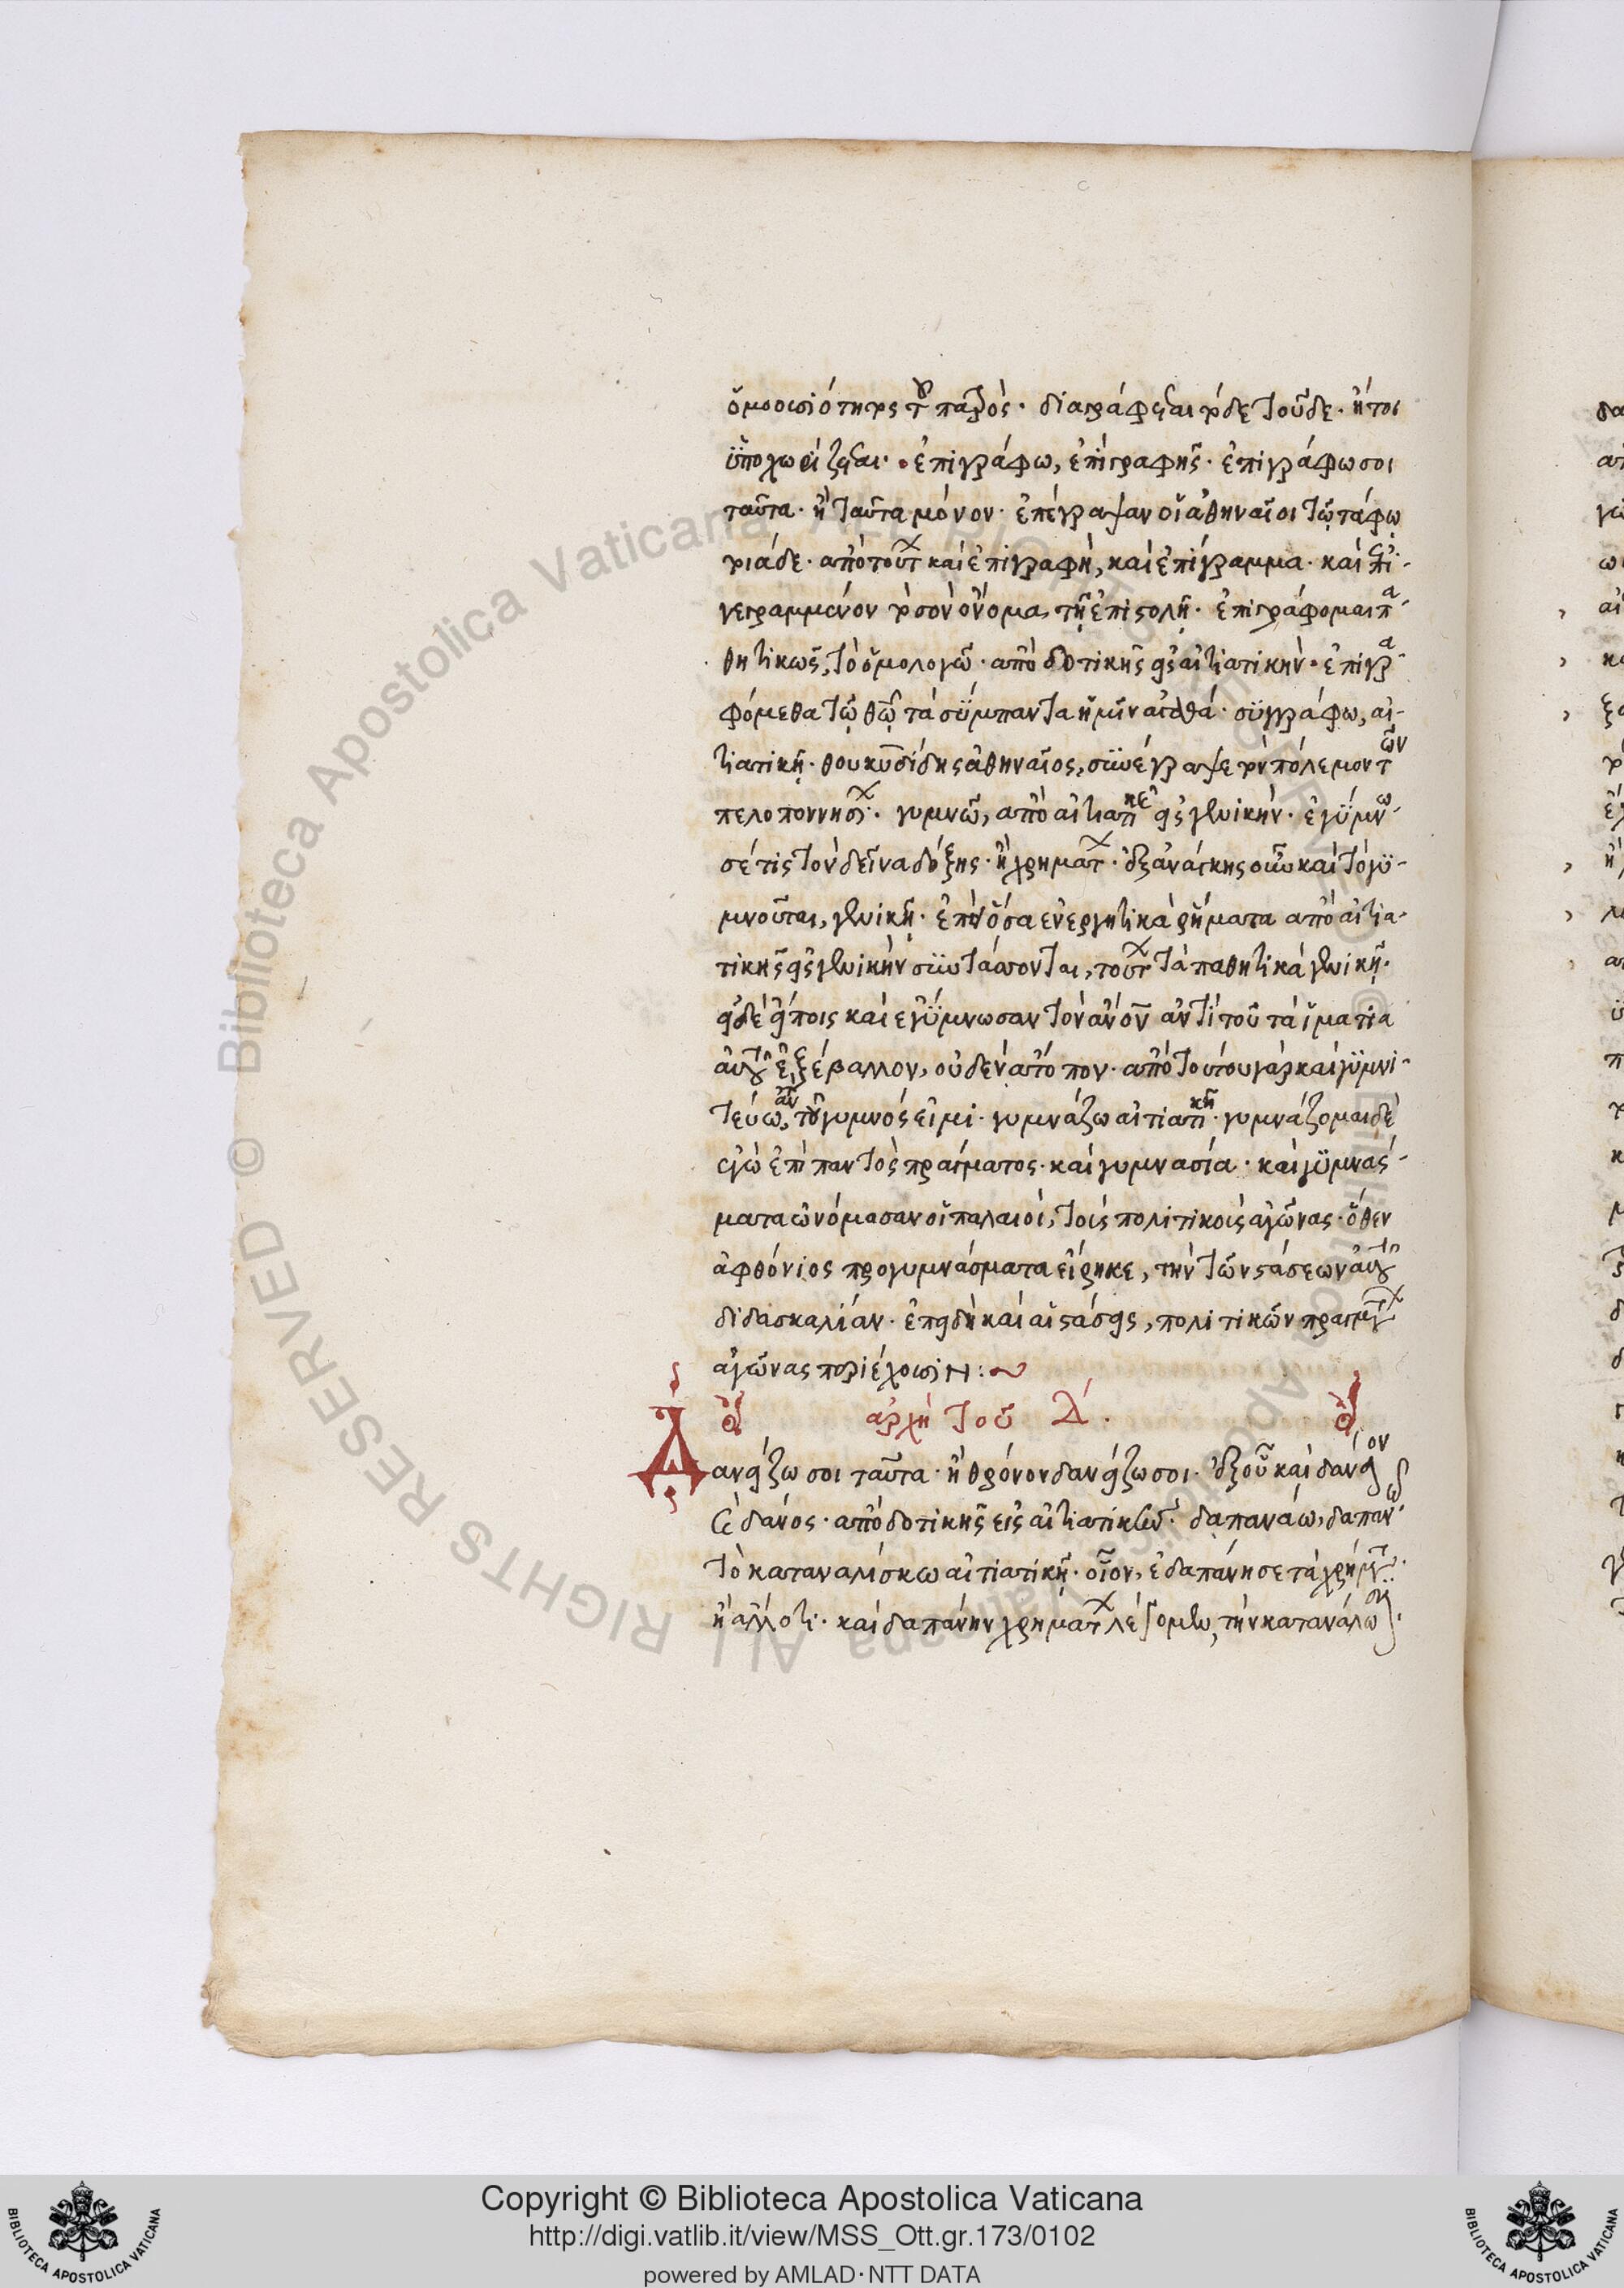 ὁμοουσιότητος τοῦ πατρός· διαγράφεται τόδε τοῦδε· ἤτοι
ὑποχωρίζεται· ἐπιγράφω, ἐπιγραφῆς· ἐπιγράφω σοι
ταῦτα· ἢ ταῦτα μόνον· ἐπέγραψαν οἱ ἀθηναῖοι τῷ τάφῳ
τοιάδε· ἀπὸ τούτου καὶ ἐπιγραφή, καὶ ἐπίγραμμα· καὶ ἐπι-
γεγραμμένον τὸ σὸν ὄνομα, τῇ ἐπιστολῇ· ἐπιγράφομαι πα-
θητικῶς, τὸ ὁμολογῶ· ἀπὸ δοτικῆς εἰς αἰτιατικήν· ἐπιγρα-
φόμεθα τῷ θῷ τὰ σύμπαντα ἡμῖν ἀγαθά· συγγράφω, αἰ-
τιατικῇ· θουκυδίδης ἀθηναῖος, συνέγραψε τὸν πόλεμον τῶν
πελοποννησίων· γυμνῶ, ἀπὸ αἰτιατικῆς εἰς γενικήν· ἐγύμνω-
σέ τις τὸν δεῖνα δόξης· ἢ χρημάτων· ἐξ ἀνάγκης οὖν καὶ τὸ γυ-
μνοῦται, γενικῇ· ἐπεὶ ὅσα ἐνεργητικὰ ῥήματα ἀπὸ αἰτια-
τικῆς εἰς γενικὴν συντάσσονται, τούτων τὰ παθητικὰ γενικῇ·
εἰ δὲ εἴποις καὶ ἐγύμνωσαν τὸν ἄνον ἀντὶ τοῦ τὰ ἱμάτια
αὐτοῦ ἐξέβαλλον, οὐδὲν ἄτοπον· ἀπὸ τούτου γὰρ καὶ γυμνι-
τεύω, ἀντὶ τοῦ γυμνός εἰμι· γυμνάζω αἰτιατικῇ· γυμνάζομαι δὲ
ἐγὼ ἐπὶ παντὸς πράγματος· καὶ γυμνασία· καὶ γυμνάς-
ματα ὠνόμασαν οἱ παλαιοί, τοὺς πολιτικοὺς ἀγῶνας· ὅθεν
ἀφθόνιος προγυμνάσματα εἴρηκε, τὴν τῶν στάσεων αὐτοῦ
διδασκαλίαν· ἐπειδὴ καὶ αἱ στάσεις, πολιτικῶν πραγμάτων
ἀγῶνας περιέχουσιν:~
ἀρχὴ τοῦ Δ´.
Δανείζω σοι ταῦτα· ἢ θρόνον δανείζω σοι· ἐξ οὗ καὶ δάνειον
καὶ δάνος· ἀπὸ δοτικῆς εἰς αἰτιατικήν· δαπανάω, δαπανῶ
τὸ καταναλίσκω αἰτιατικῇ· οἷον, ἐδαπάνησε τὰ χρήματα·
ἢ ἄλλό τι· καὶ δαπάνην χρημάτων λέγομεν, τὴν κατανάλωσιν·
Copyright © Biblioteca Apostolica Vaticana
http://digi.vatlib.it/view/MSS_Ott.gr.173/0102
powered by AMLAD·NTT DATA